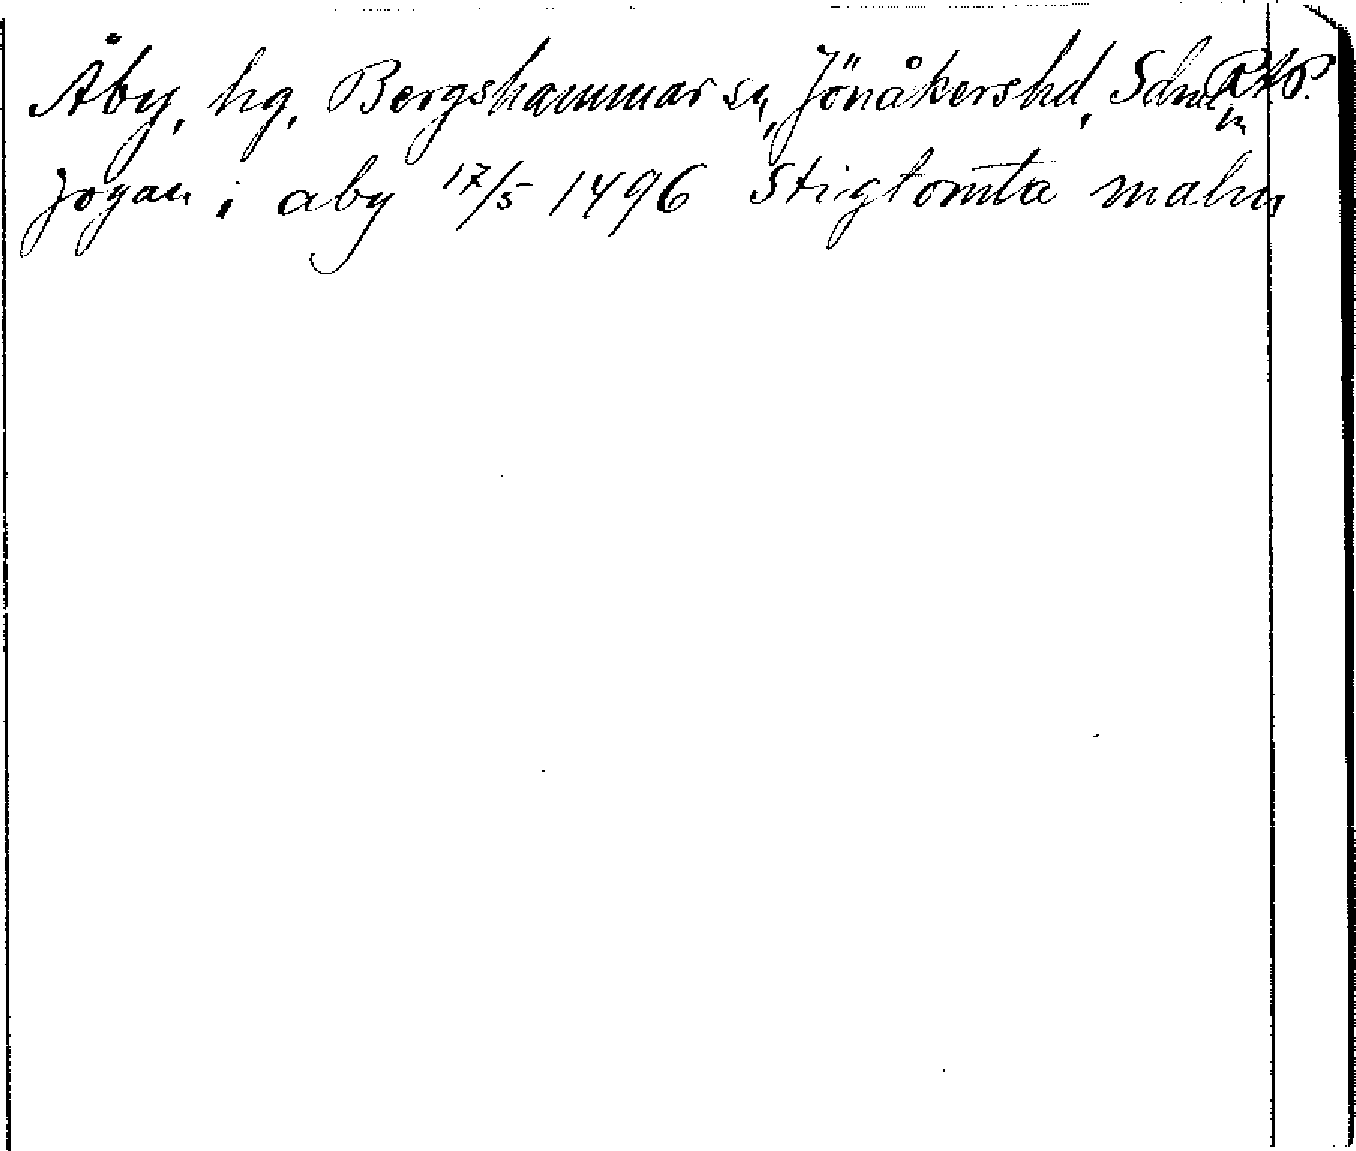 Åby, hg, Bergshammar sn, Jönåkershd, Sdml
Jogan i aby 17/5 1496 Stigtomta malm